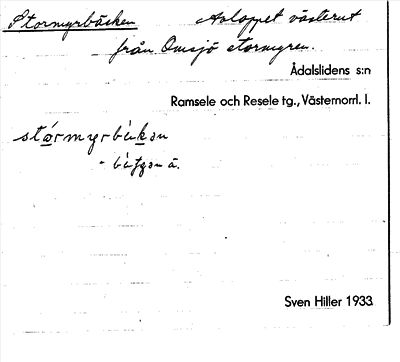 Stormyrbäcken Avloppet västerut
från Omsjö stormyren.
Ådalslidens s:n
Ramsele och Resele tg., Västernorrl. l.
Sven Hiller 1933